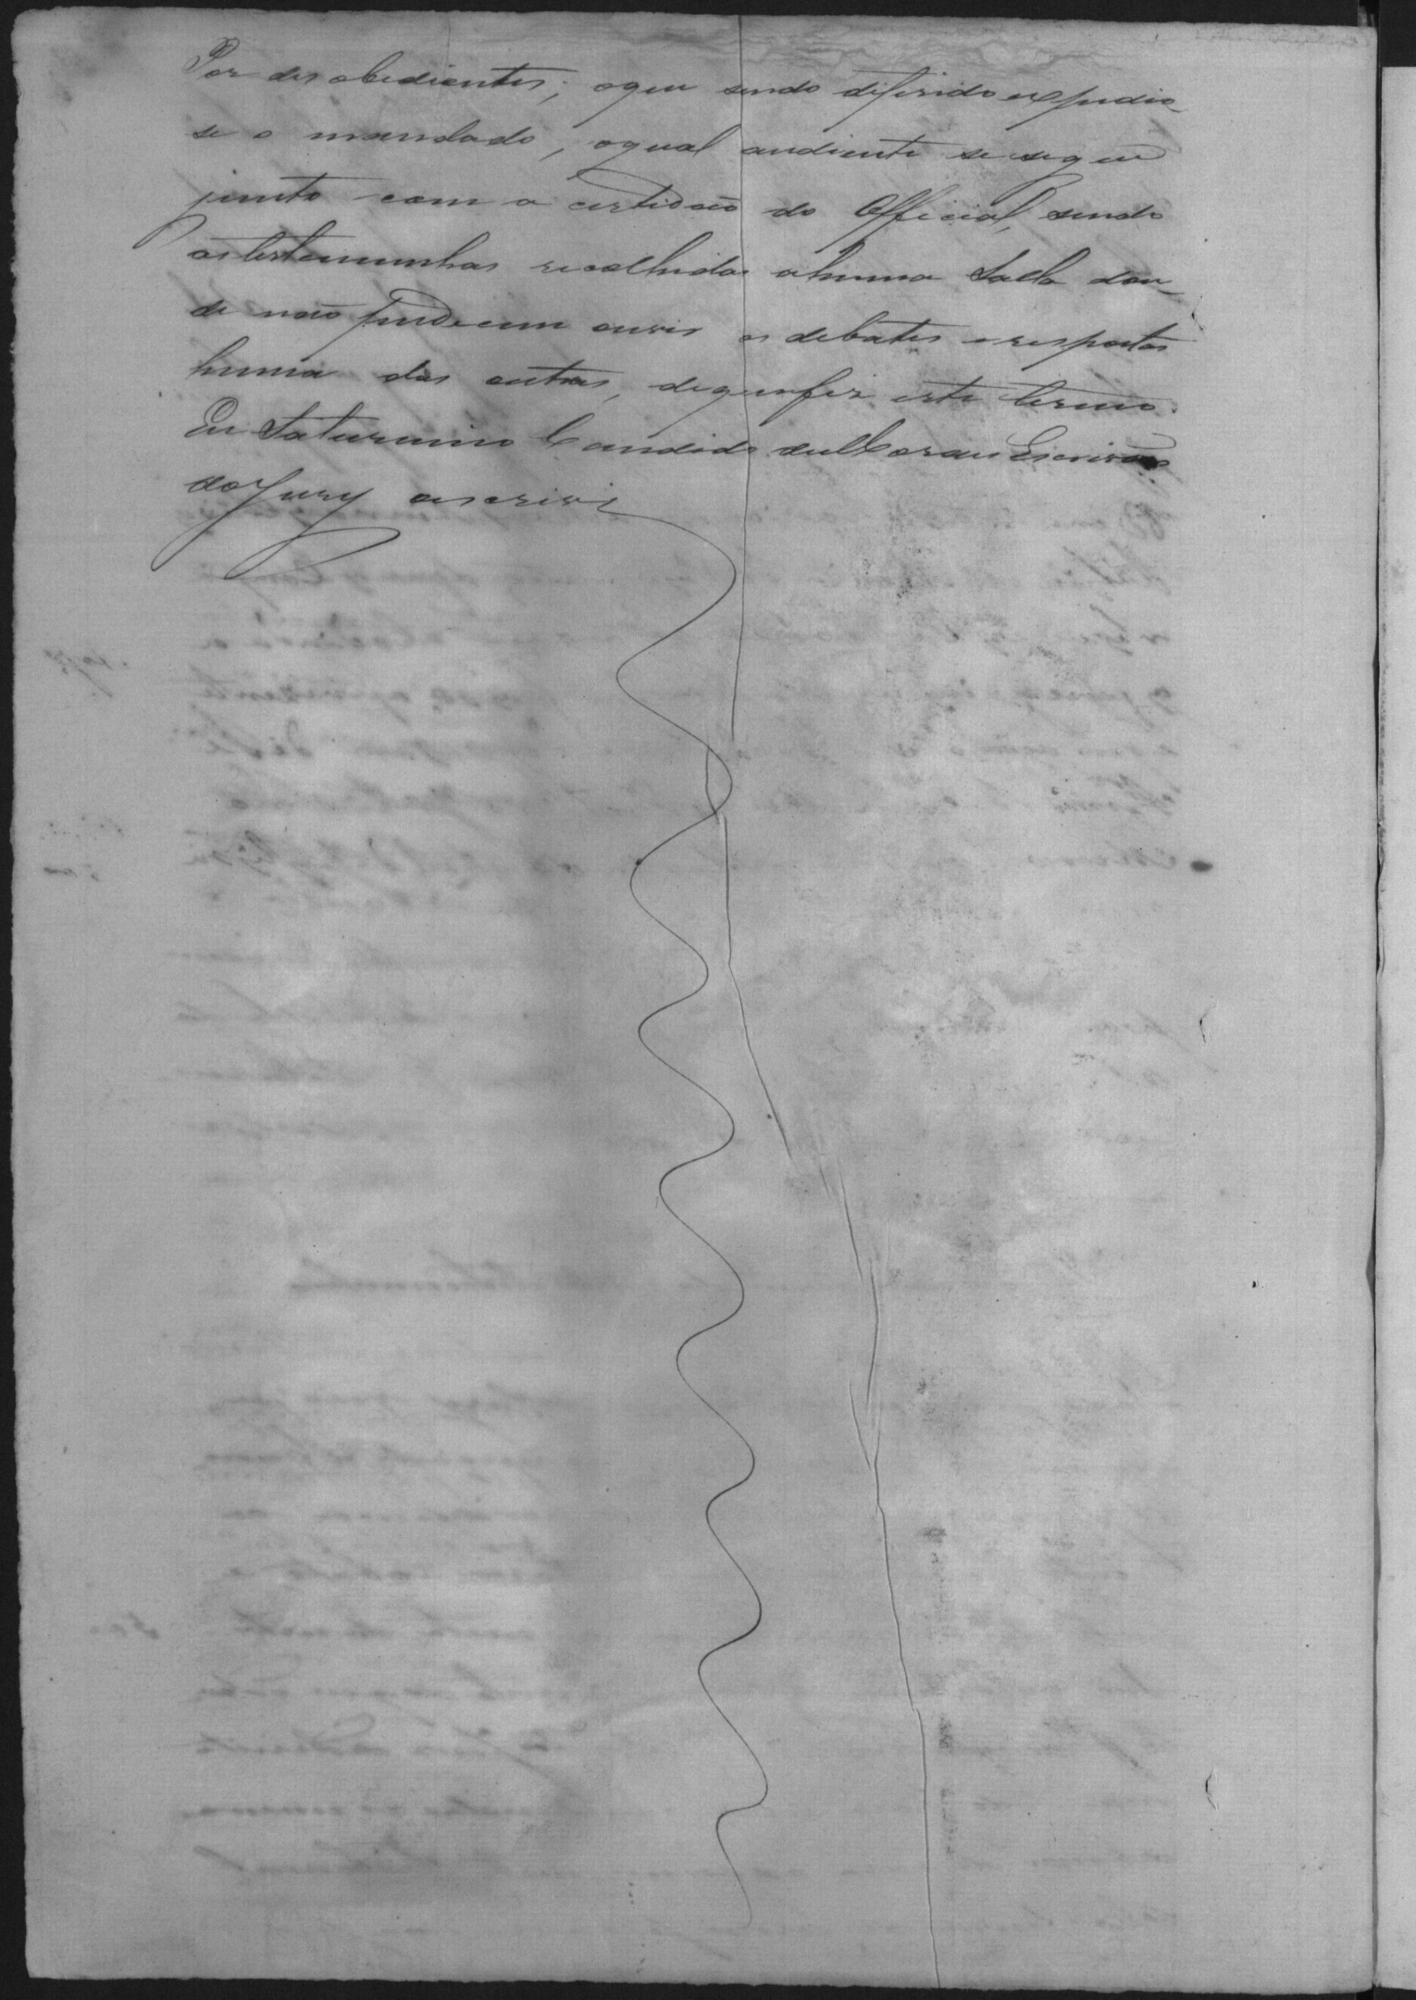 Por desobedientes; oque sendo diferido expedio-
se o mandado, oqual audiente se segue
junto com a certidaõ do Official, sendo
as testemunhas recolhidas ahuma Salla don-
de naõ pudecem ouvir os debates e respostas
huma das outras, dequefiz este termo.
Eu Saturnino Candido de Moraes Escrivaõ
do Jury o escrivi